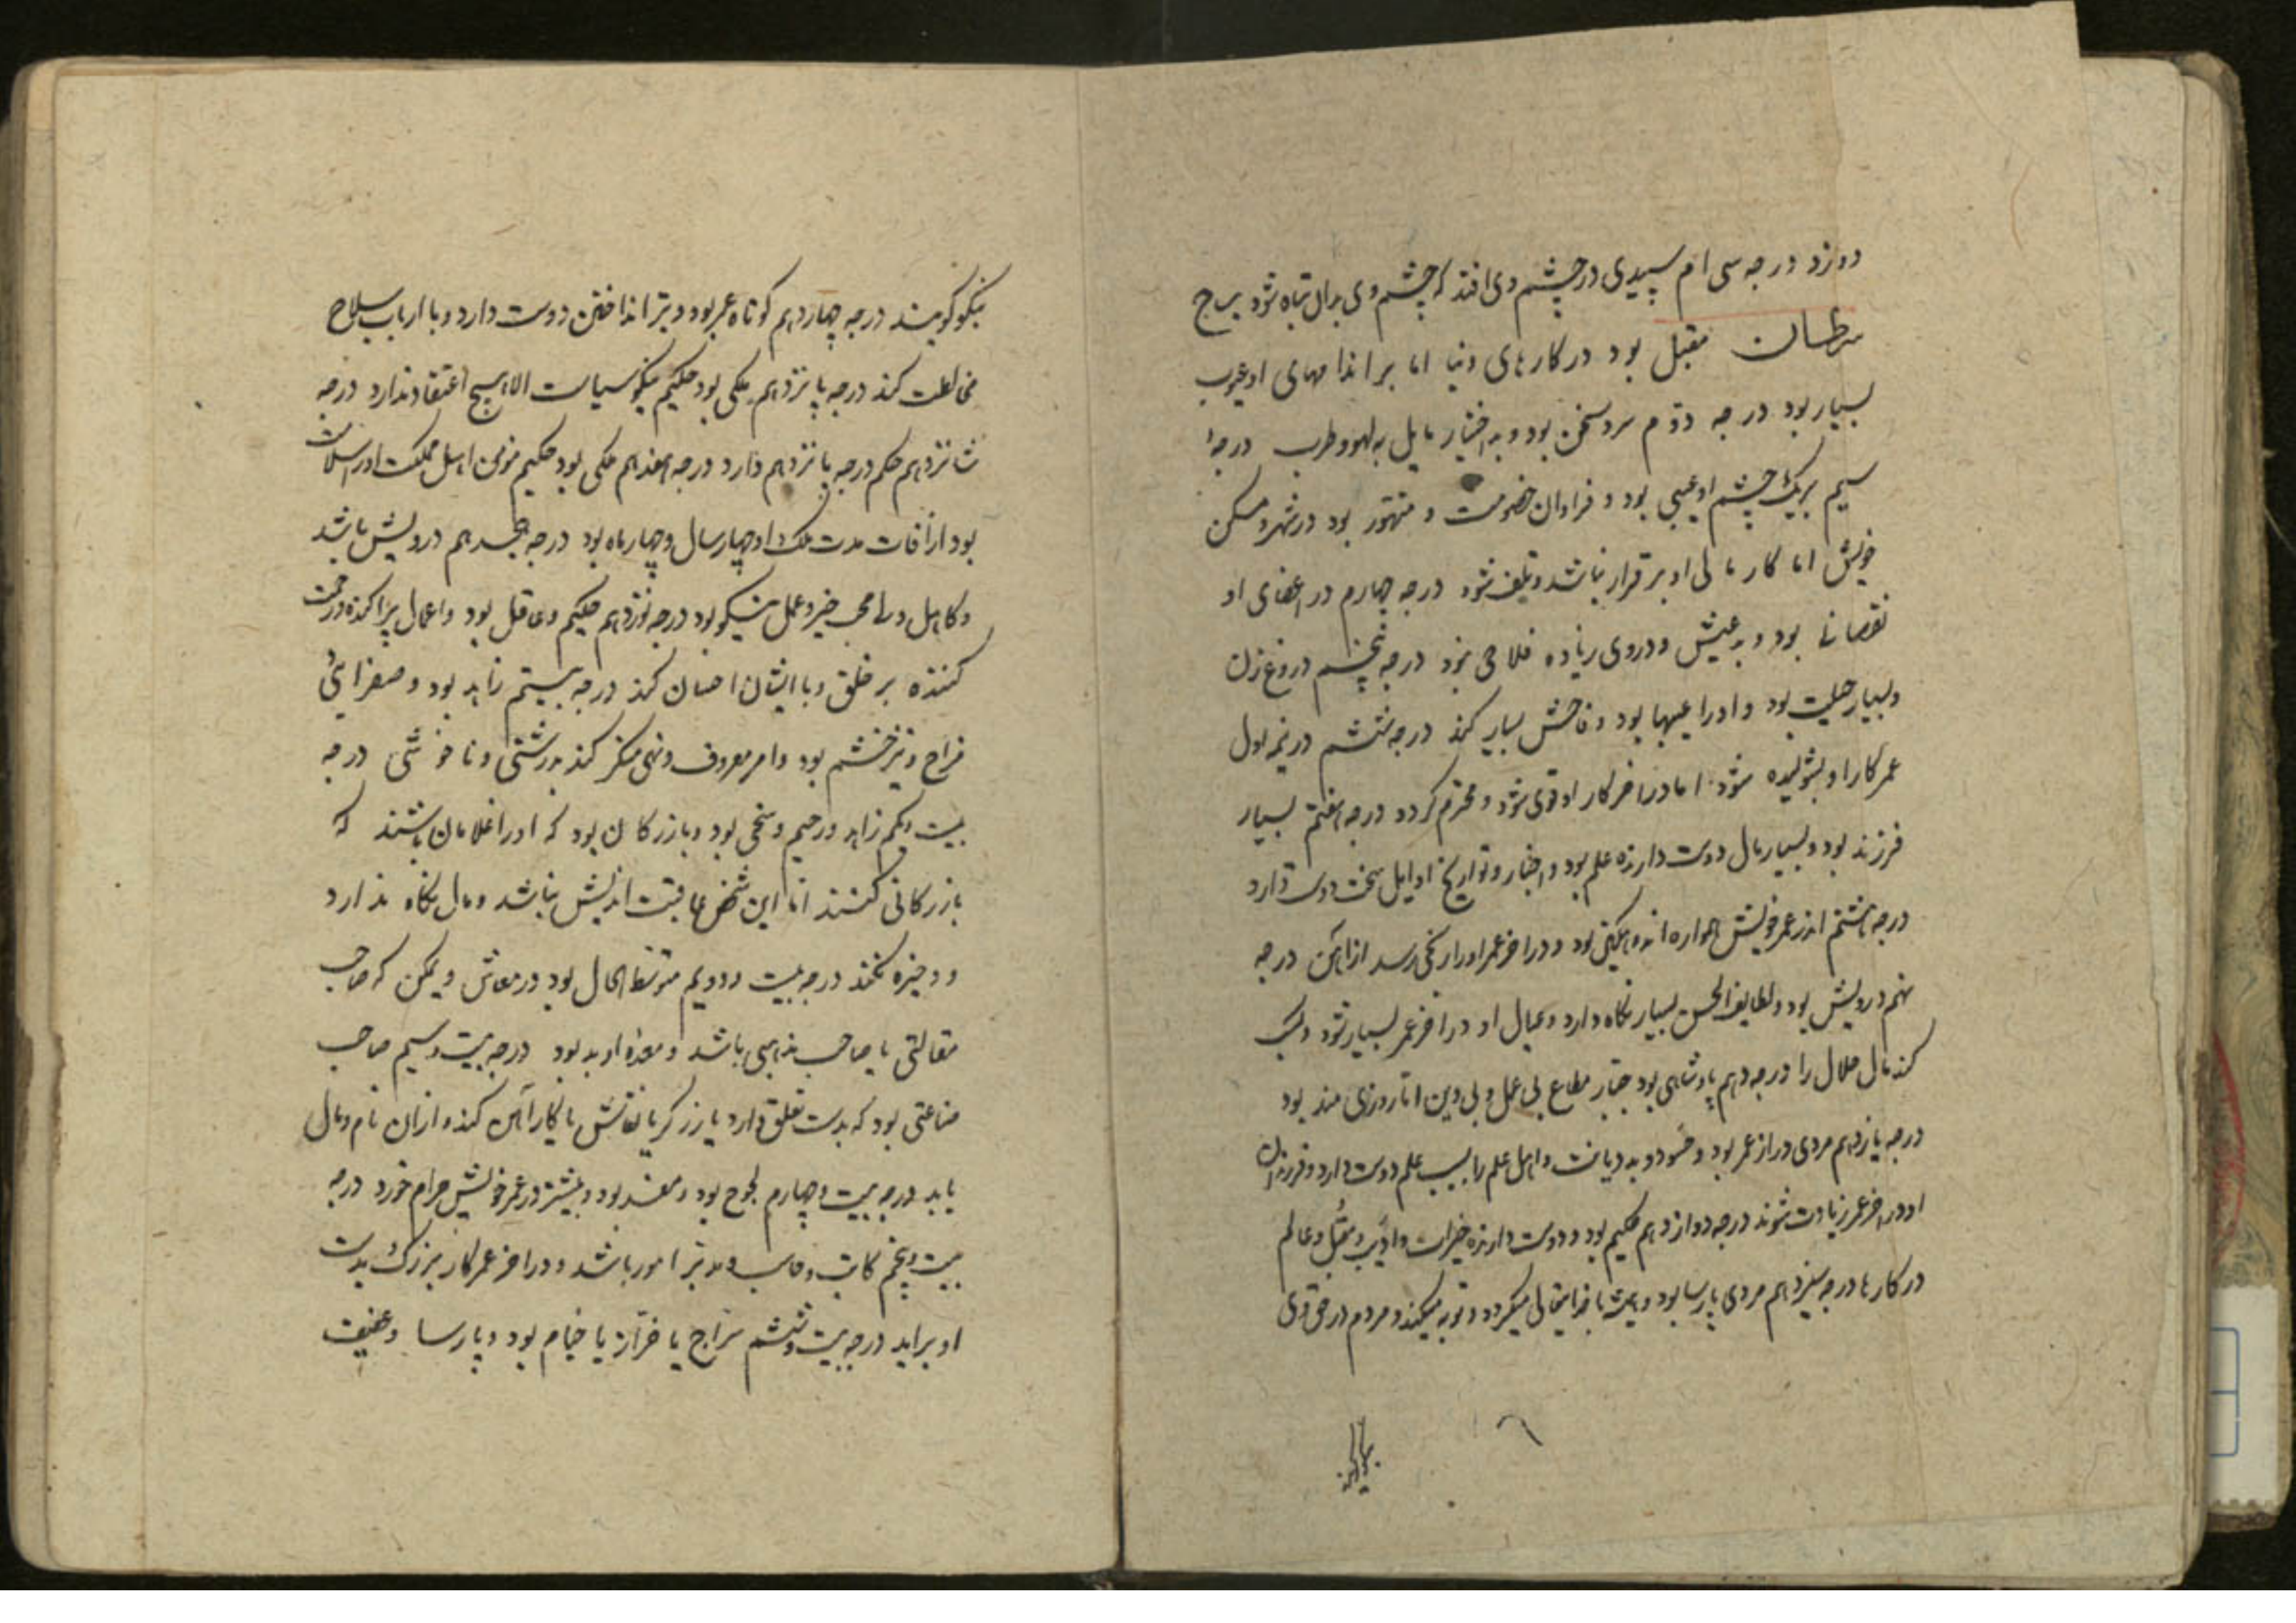 دوزد درجه سی ام سپیدی در چشم وی افتد که چشم وی بدان تباه شود برج
سرطان مقبل بود در کارهای دنیا اما بر اندامهای او عیوب
بسیار بود درجه دوم سرد سخن بود و به اختیار مایل به لهو و طرب درجهٔ
سیم بر یک چشم او عیبی بود و فراوان خصومت و متهور بود در شهر و مسکن
خویش اما کار مالی او بر قرار نباشد و تلف شود درجه چهارم در اعضای او
نقصانی بود و بد عیش و در وی زیاده فلاحی نبود درجه پنجم دروغ زن
و بسیار حیلت بود و او را عیبها بود و فاحش بسیار کند درجه ششم در نیمه اول
عمر کار او بشولیده شود اما در آخر کار او قوی شود و محترم گردد درجه هفتم بسیار
فرزند بود و بسیار مال دوست دارنده علم بود و اخبار و تواریخ اوایل سخت دوست دارد
درجه هشتم اندر عمر خویش همواره اندوهگین بود و در آخر عمر او را رنجی رسد از آهن درجه
نهم درویش بود و لطایف الحسن بسیار نگاه دارد و عیال او در آخر عمر بسیار شود و کسب
کند مال حلال را درجه دهم پادشاهی بود جبار مطاع بی عمل و بی دین اما روزی مند بود
درجه یازدهم مردی دراز عمر بود و حسود و بد دیانت و اهل علم را بسبب علم دوست دارد و فرزندان
او در آخر عمر زیادت شوند درجه دوازدهم حکیم بود و دوست دارنده خیرات و ادیب و مقبل و عالم
در کارها درجه سیزدهم مردی پارسا بود و همیشه با خدایتعالی میگردد و توبه میکند و مردم در حق وی
نیکو گویند درجه چهاردهم کوتاه عمر بود و تیر انداختن دوست دارد و با ارباب سلاح
مخالطت کند درجه پانزدهم ملکی بود حکیم نیکو سیاست الا بهیچ اعتقاد ندارد درجه
شانزدهم حکم درجه پانزدهم دارد درجه هفدهم ملکی بود حکیم مؤمن اهل مملکت او را سلامت
بود از آفات مدت ملک او چهار سال و چهار ماه بود درجه هجدهم درویش باشد
و کاهل و محب خیر و عمل نیکو بود درجه نوزدهم حکیم و عاقل بود و اعمال پراکنده و رحمت
کننده بر خلق و با ایشان احسان کند درجه بیستم زاهد بود و صفرائی
مزاج و تیز خشم بود و امر معروف و نهی منکر کند بدرشتی و ناخوشی درجه
بیست و یکم زاهد و رحیم و سخی بود و بازرگان بود که او را غلامان باشند که
بازرگانی کنند اما این شخص عاقبت اندیش نباشد و مال نگاه ندارد
و ذخیره نکند درجه بیست و دویم متوسط الحال بود در معاش و ممکن که صاحب
مقالتی یا صاحب مذهبی باشد و معده او بد بود درجه بیست و سیم صاحب
صناعتی بود که بدست تعلق دارد یا زرگر یا نقاش یا کار آهن کند و از ان نام و مال
یابد درجه بیست و چهارم لجوج بود و مفسد بود و بیشتر در عمر خویش حرام خورد درجه
بیست و پنجم کاتب و حاسب و مدبر امور باشد و در آخر عمر کار بزرگ بدست
او براید درجه بیست و ششم سراج یا خراز یا خیام بود و پارسا و عفیف